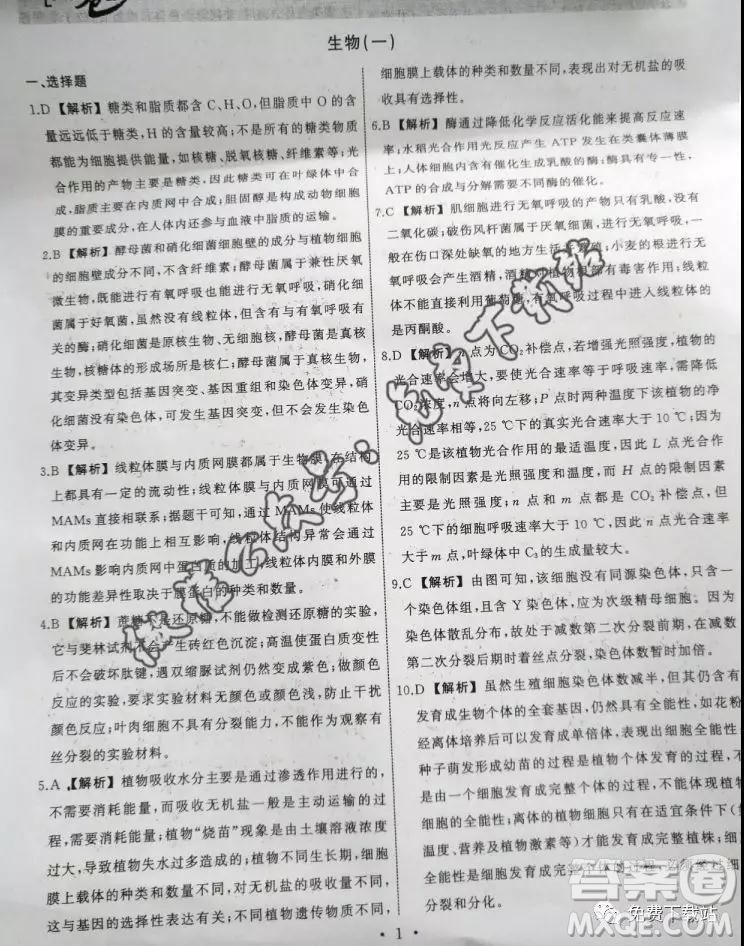 生物(一)
一、选择题
1.D 【解析】糖类和脂质都含 C、H、O,但脂质中 O 的含
量远远低于糖类,H 的含量较高;不是所有的糖类物质
都能为细胞提供能量,如核糖、脱氧核糖、纤维素等;光
合作用的产物主要是糖类,因此糖类可在叶绿体中合
成,脂质主要在内质网中合成;胆固醇是构成动物细胞
膜的重要成分,在人体内还参与血液中脂质的运输。
2.B 【解析】酵母菌和硝化细菌细胞壁的成分与植物细
胞的细胞壁成分不同,不含纤维素;酵母菌属于兼性厌氧
微生物,既能进行有氧呼吸也能进行无氧呼吸,硝化细
菌属于好氧菌,虽然没有线粒体,但含有与有氧呼吸有
关的酶;硝化细菌属于原核生物,无细胞核,也无
核仁,核糖体的形成场所是核仁;酵母菌属于真核生物,
其变异类型包括基因突变、基因重组和染色体变异,硝
化细菌没有染色体,可发生基因突变,但不会发生染色
体变异。
3.B 【解析】线粒体膜与内质网膜都属于生物膜,在结构
上都具有一定的流动性;线粒体膜与内质网膜可通过
MAMs 直接相联系;据题干可知,通过 MAMs 使线粒体
和内质网在功能上相互影响,线粒体结构异常会通过
MAMs 影响内质网中蛋白质的加工;线粒体内膜和外膜
的功能差异性取决于膜蛋白的种类和数量。
4.B 【解析】蔗糖不是还原糖,不能做检测还原糖的实验,
它与斐林试剂不会产生砖红色沉淀;高温使蛋白质变性
后不会破坏肽键,遇双缩脲试剂仍然变成紫色;做颜色
反应的实验,要求实验材料无颜色或颜色浅,以防干扰
颜色反应;叶肉细胞不具有分裂能力,不能作为观察有
丝分裂的实验材料。
5.A 【解析】植物吸收水分主要是通过渗透作用进行的,
不需要消耗能量,而吸收无机盐的主要是主动运输的过
程,需要消耗能量;植物“烧苗”现象是由土壤溶液浓度
过大,导致植物失水过多造成的;植物不同生长期,细胞
膜上载体的种类和数量不同,对无机盐的吸收量不同,
这与基因的选择性表达有关;不同植物遗传物质不同,
细胞膜上载体的种类和数量不同,表现出对无机盐的吸
收具有选择性。
6.B 【解析】酶通过降低化学反应活化能来提高反应速
率;水稻光合作用光反应产生 ATP 发生在类囊体薄膜
上;人体细胞内含有催化生成乳酸的酶;酶具有专一性,
ATP 的合成与分解需要不同酶的催化。
7.C 【解析】肌细胞进行无氧呼吸的产物只有乳酸,没有
二氧化碳;破伤风杆菌属于厌氧细菌,进行无氧呼吸,一
般在伤口深处缺氧的地方生活并繁殖;小麦的根进行无
氧呼吸会产生酒精,酒精对植物根部有毒害作用;线粒
体不能直接利用葡萄糖,有氧呼吸过程中进入线粒体的
是丙酮酸。
8.D 【解析】n 点为 CO₂ 补偿点,若增强光照强度,植物的
光合速率会增大,要使光合速率等于呼吸速率,应降低
CO₂浓度,n 点将向左移;P 点时两温度下该植物的净
光合速率相等,25 ℃下的真实光合速率大于 10 ℃;因为
25 ℃是该植物光合作用的最适温度,因此 L 点光合作
用的限制因素是光照强度,而 H 点的限制因素
主要是光照强度;n 点和 m 点都是 CO₂ 补偿点,但
25 ℃下的细胞呼吸速率大于 10 ℃,所以 n 点光合速率
大于 m 点,叶绿体中 C₃的生成量较大。
9.C 【解析】由图可知,该细胞没有同源染色体,只含一
个染色体组,且含 Y 染色体,应为次级精母细胞。因为
染色体散乱分布,故处于减数第二次分裂前期,在减数
第二次分裂后期时着丝点分裂,染色体数暂时加倍。
10.D 【解析】虽然生殖细胞染色体数减半,但其仍含有
发育成生物个体的全套基因,仍然具有全能性,如花粉
经离体培养后可以发育成单倍体,表现出了全能性;
种子萌发形成幼苗的过程是植物个体发育的过程,不
是由细胞发育成完整个体的过程,不能体现细胞的
全能性;离体的植物细胞只有在适宜条件下(如
温度、营养及植物激素等)才能发育成完整植株;细胞
全能性是细胞发育成完整个体的过程,必须要经过细
胞的分裂和分化。
1
答案圈
MXQE.COM
免费下载站